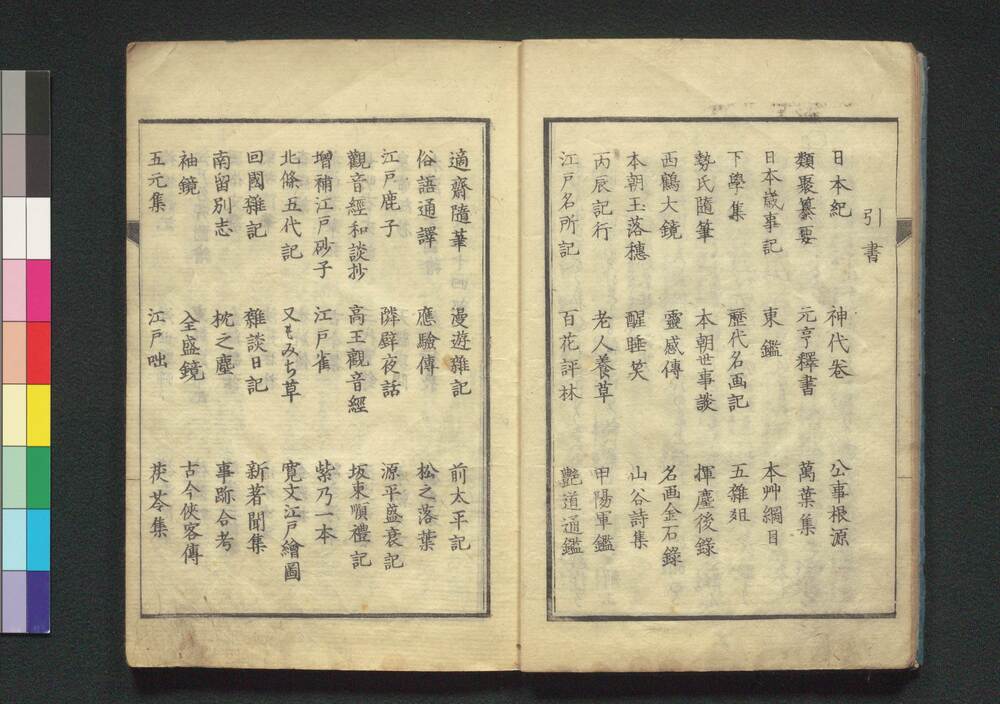 引書
日本紀　神代卷　公事根源
類聚纂要　元亨釋書　萬葉集
日本歳事記　東鑑　本艸綱目
下學集　歷代名画記　五雜爼
勢氏隨筆　本朝世事談　揮塵後錄
西鶴大鏡　靈感傳　名画金石錄
本朝玉落穗　醒睡笑　山谷詩集
丙辰記行　老人養草　甲陽軍鑑
江戸名所記　百花評林　艷道通鑑
適齋隨筆　漫遊雜記　前太平記
俗語通譯　應驗傳　松之落葉
江戸鹿子　隣壁夜話　源平盛衰記
觀音經和談抄　高王觀音經　坂東順禮記
增補江戸砂子　江戸雀　紫乃一本
北條五代記　又もみち草　寛文江戸繪圖
回國雜記　雜談日記　新著聞集
南留別志　枕之塵　事跡合考
袖鏡　全盛鏡　古今俠客傳
五元集　江戸咄　茯苓集